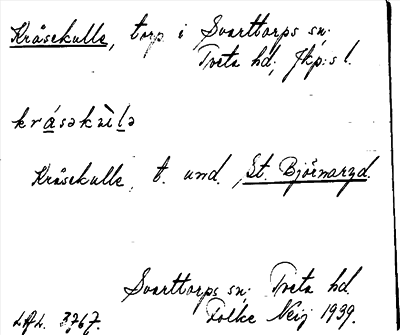 Kråsekulle, torp i Svarttorps sn.
Tveta hd, Jkp:s l.
kråsəkùlə
Kråsekulle, t. und. St. Björnaryd.
Svarttorps sn. Tveta hd
L.A.L. 3767. Folke Neij 1939.